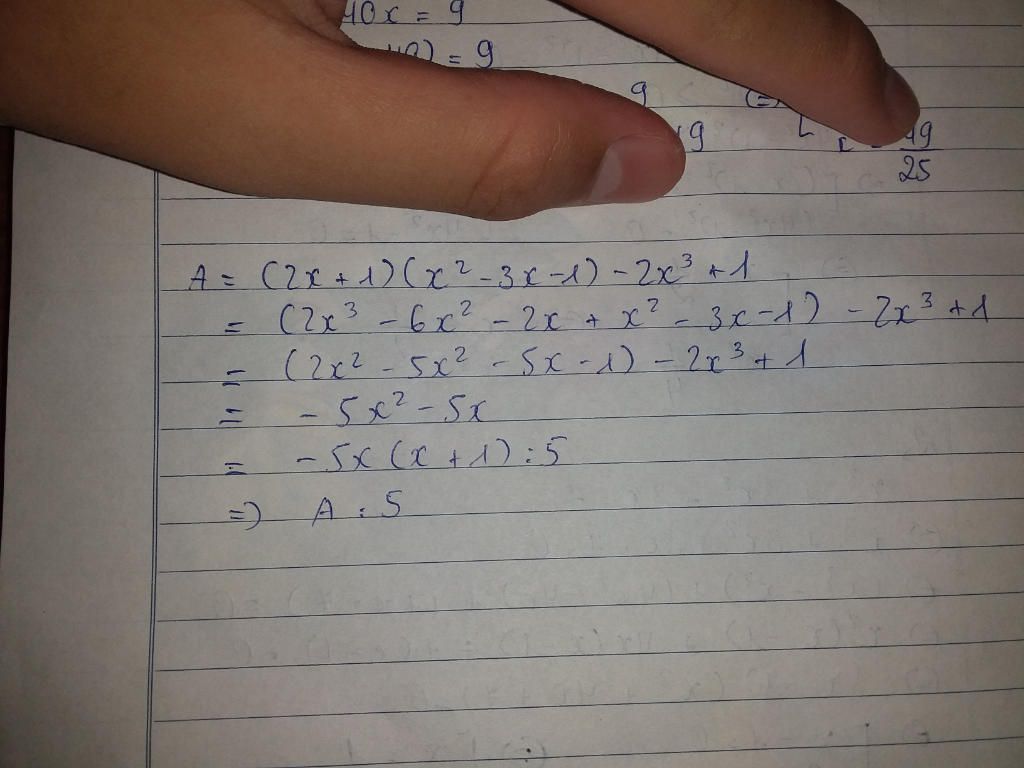 40x = 9
) = 9
9
9
49
25
A = (2x + 1)(x² - 3x - 1) - 2x³ + 1
= (2x³ - 6x² - 2x + x² - 3x - 1) - 2x³ + 1
= (2x² - 5x² - 5x - 1) - 2x³ + 1
= - 5x² - 5x
= - 5x (x + 1) : 5
=) A : 5